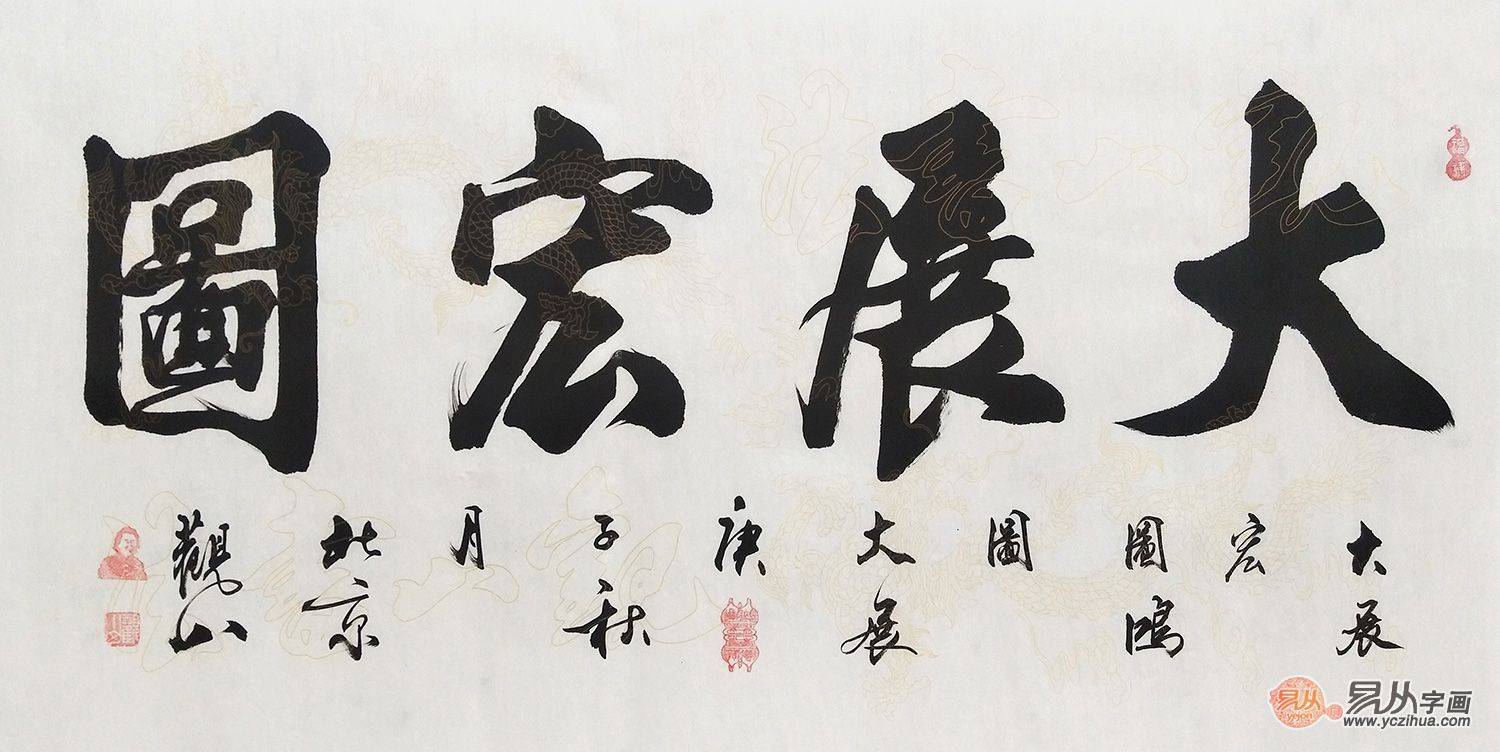 大展宏圖
大展
宏
圖鴻
圖
大展
庚
子秋
月
北京
觀山
易从
yicon
易从字画
www.yczihua.com